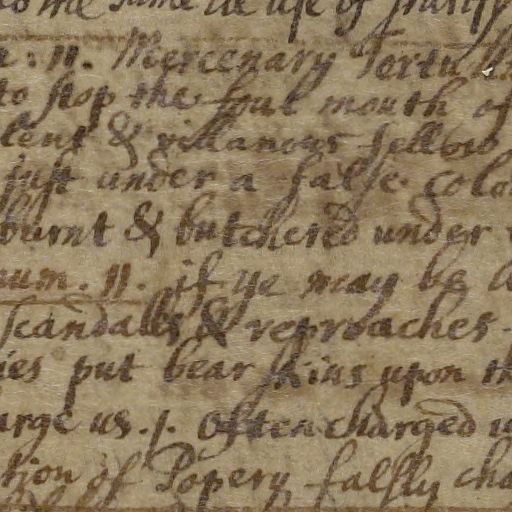 the same the use of
: 11. Mercenary Tertull
to stop the foul mouth of
lent & villanous fellow
just under a false colo
burnt & butchered under
num. 11. if ye may be
scandalls & reproaches
ies put bear skins upon th
arge us. 1. Often charged u
tion of Popery falsly cha